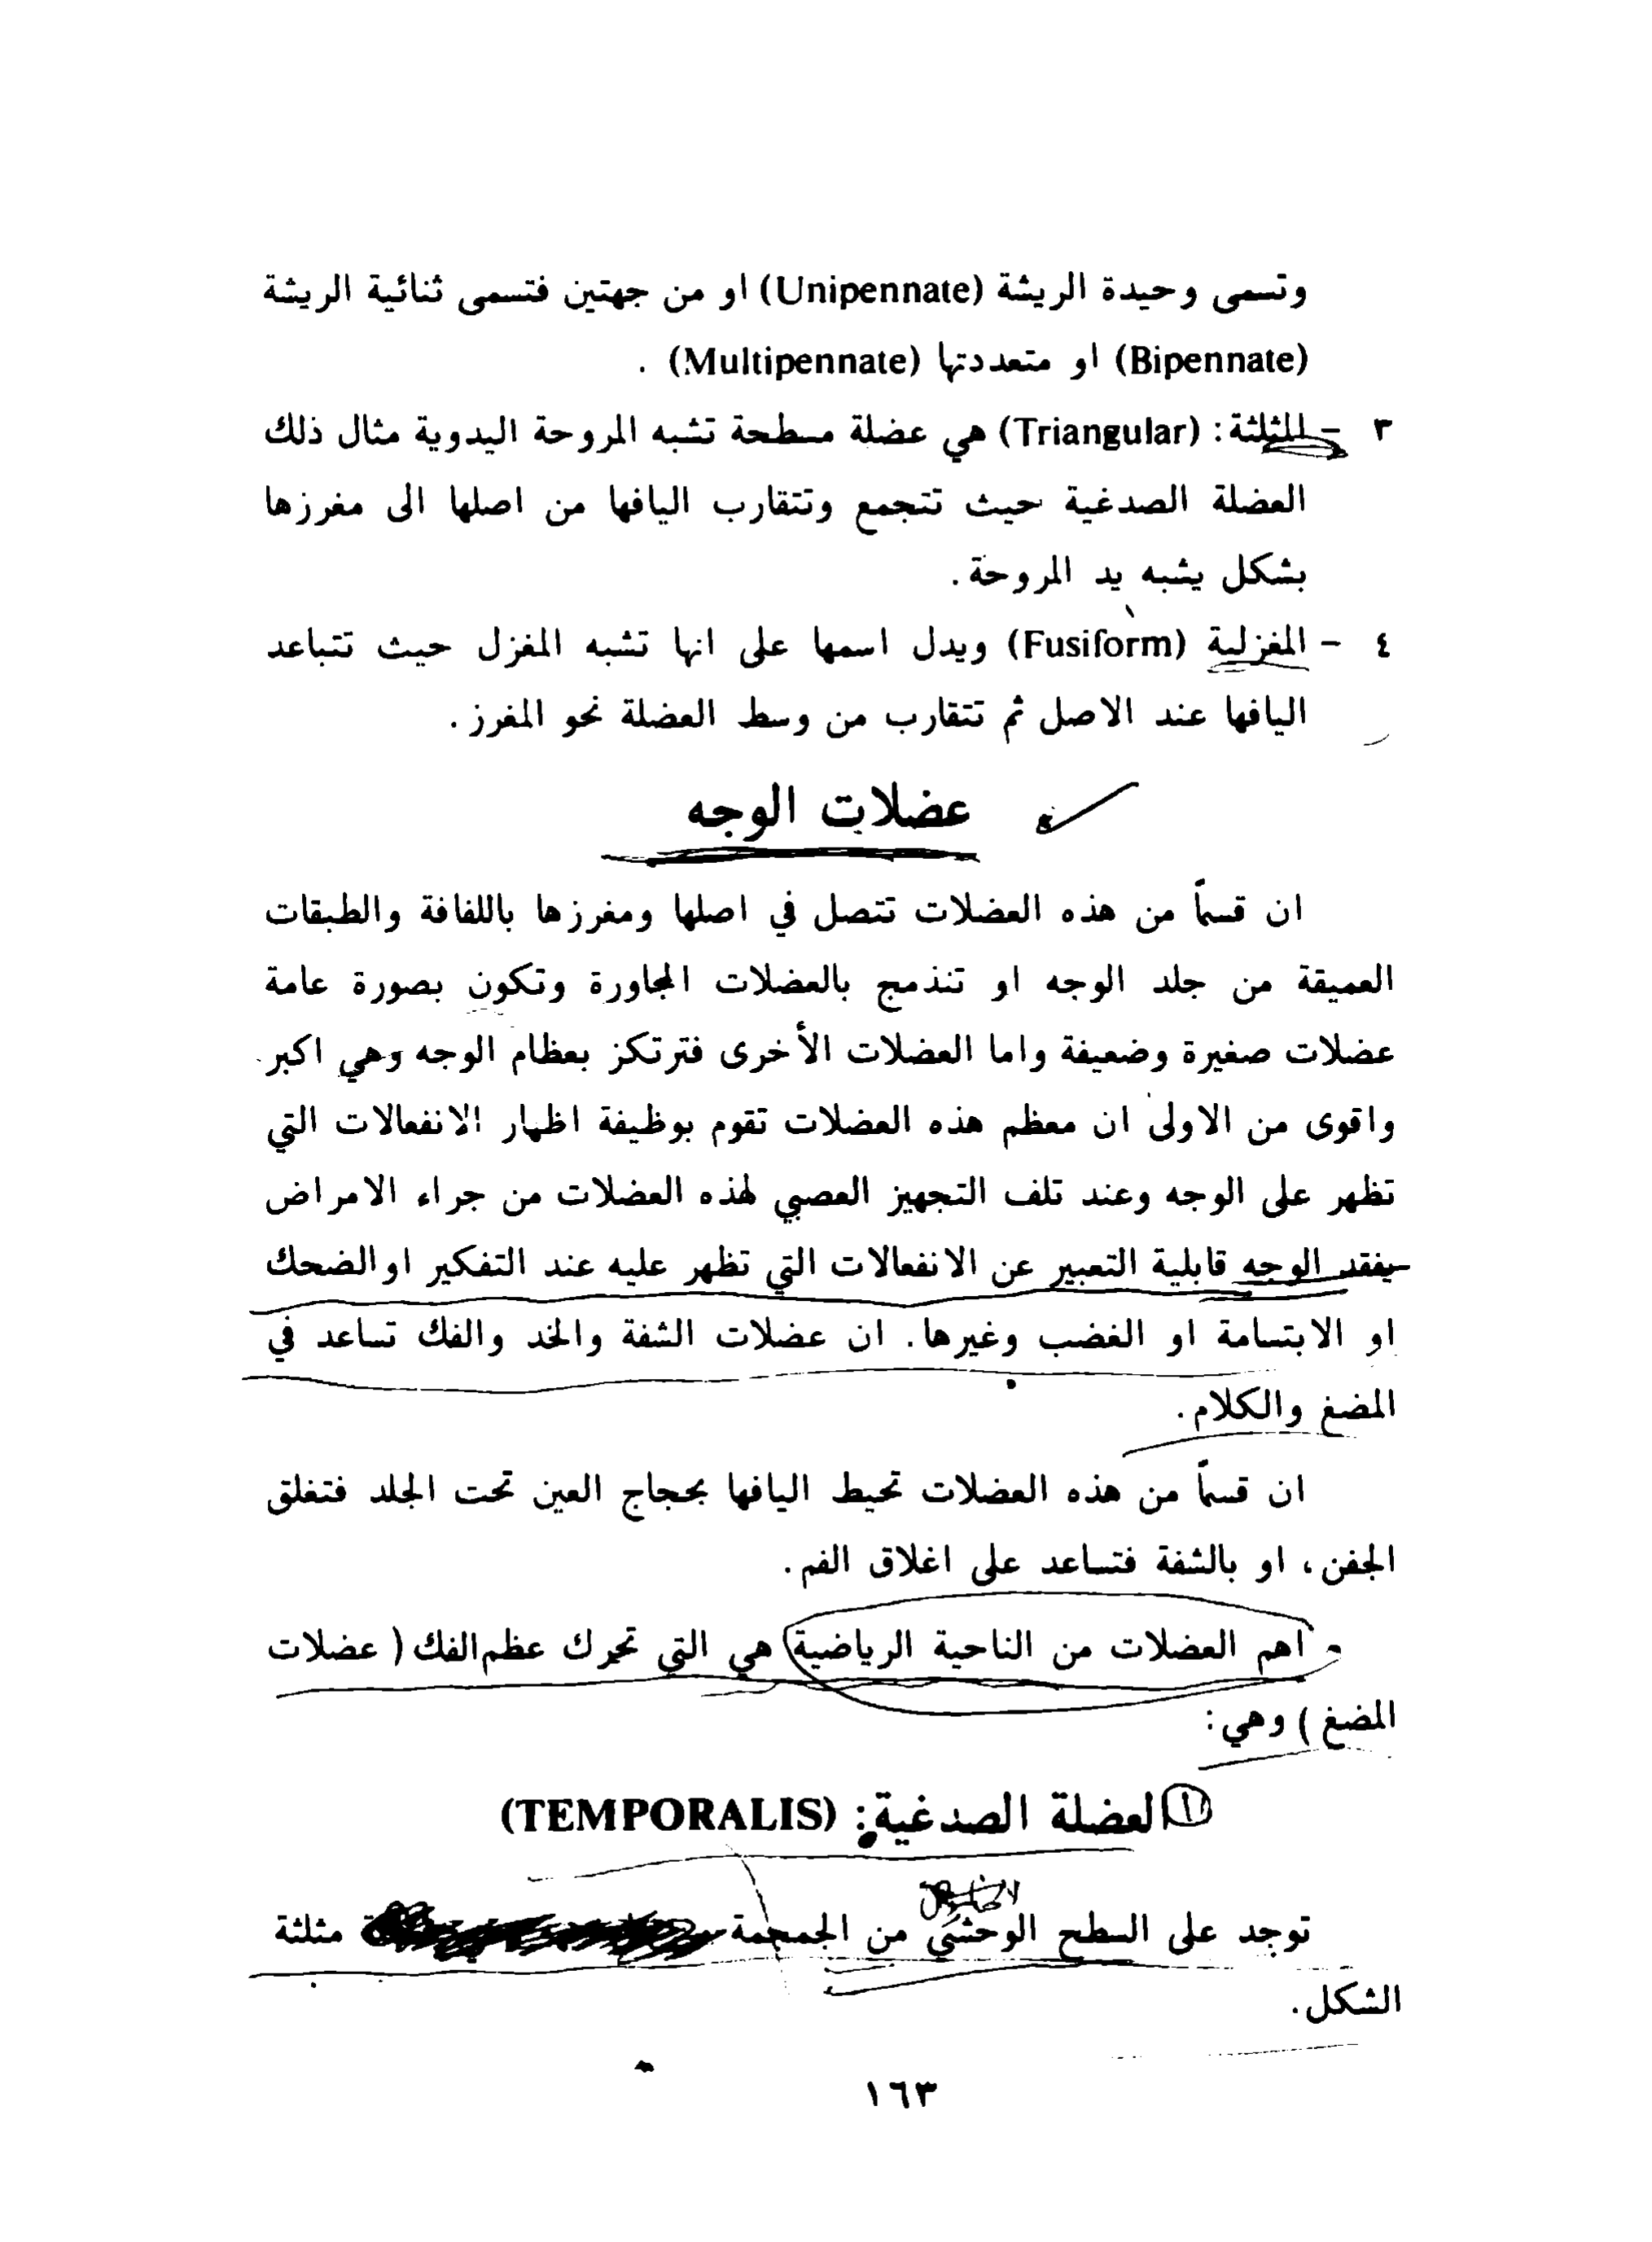 وتسمى وحيدة الريشة (Unipennate) او من جهتين فتسمى ثنائية الريشة
(Bipennate) او متعددتها (Multipennate) .
٣ - المثلثة : (Triangular) هي عضلة مسطحة تشبه المروحة اليدوية مثال ذلك
العضلة الصدغية حيث تتجمع وتتقارب اليافها من اصلها الى مغرزها
بشكل يشبه يد المروحة .
٤ - المغزلية (Fusiform) ويدل اسمها على انها تشبه المغزل حيث تتباعد
اليافها عند الاصل ثم تتقارب من وسط العضلة نحو المغرز .
عضلات الوجه
ان قسماً من هذه العضلات تتصل في اصلها ومغرزها باللفافة والطبقات
العميقة من جلد الوجه او تنذمج بالعضلات المجاورة وتكون بصورة عامة
عضلات صغيرة وضعيفة واما العضلات الأخرى فترتكز بعظام الوجه وهي اكبر
واقوى من الاولى ان معظم هذه العضلات تقوم بوظيفة اظهار الانفعالات التي
تظهر على الوجه وعند تلف التجهيز العصبي لهذه العضلات من جراء الامراض
يفقد الوجه قابلية التعبير عن الانفعالات التي تظهر عليه عند التفكير او الضحك
او الابتسامة او الغضب وغيرها . ان عضلات الشفة والخد والفك تساعد في
المضغ والكلام .
ان قسماً من هذه العضلات تحيط اليافها بحجاج العين تحت الجلد فتغلق
الجفن ، او بالشفة فتساعد على اغلاق الفم .
اهم العضلات من الناحية الرياضية هي التي تحرك عظم الفك ( عضلات
المضغ ) وهي :
١ العضلة الصدغية : (TEMPORALIS)
توجد على السطح الوحشي من الجمجمة مثلثة
الشكل .
١٦٣